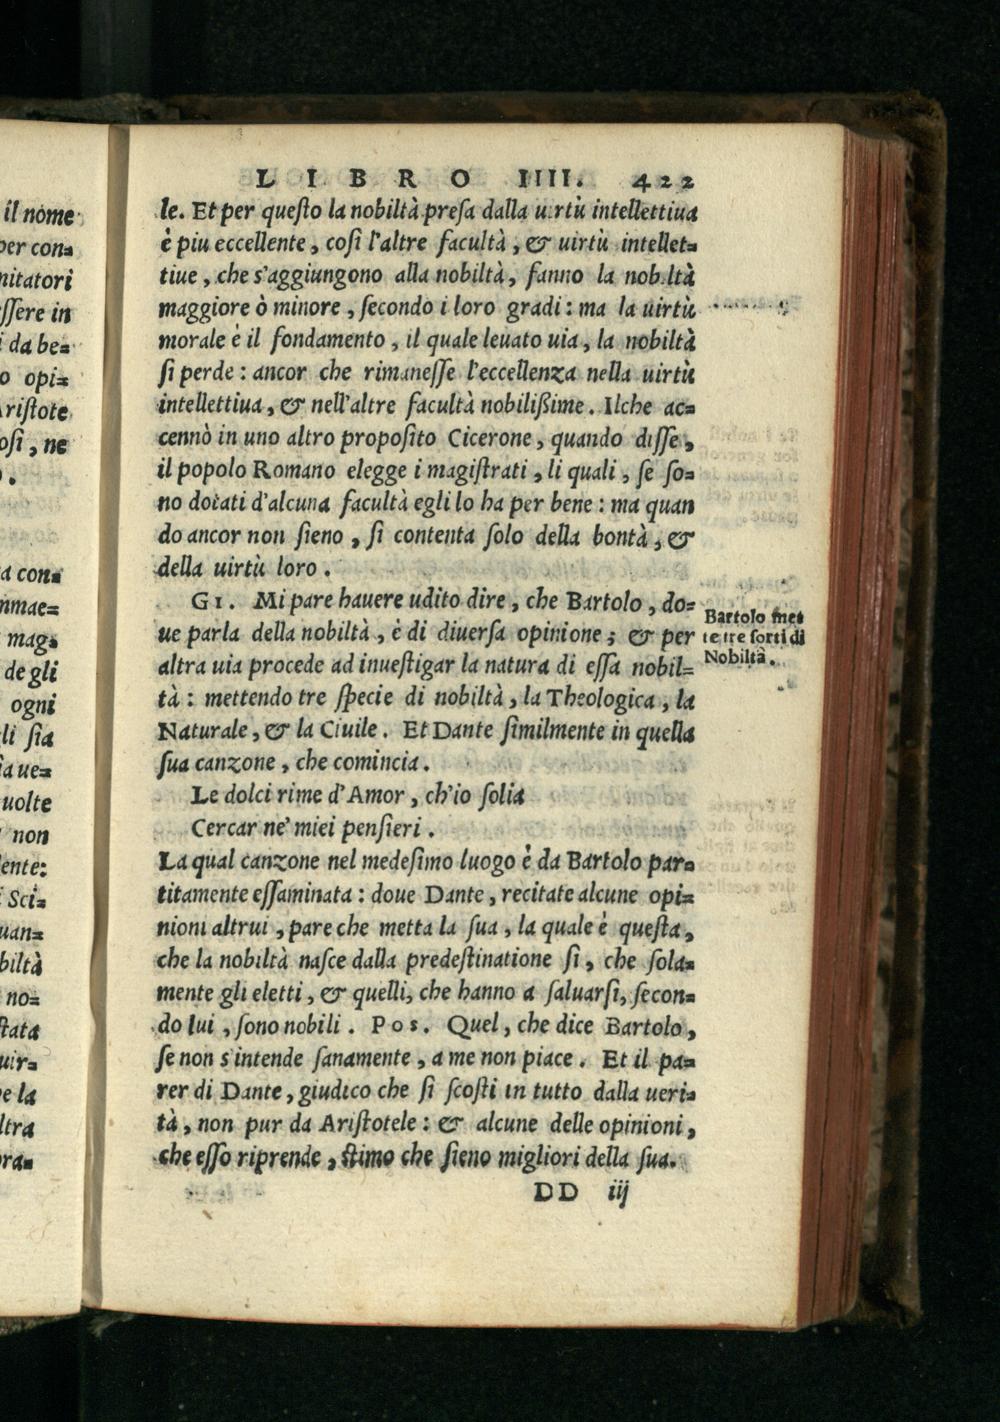 il nome
per con=
mitatori
essere in
i da be=
o opi=
Aristote
osi, ne
.
a con=
mmae=
mag=
de gli
ogni
li sia
ia ue=
uolte
non
lente:
i Sci=
uan=
biltà
no=
stata
uir=
e la
ltra
ora=
LIBRO IIII. 422
le. Et per questo la nobiltà presa dalla uirtù intellettiua
è piu eccellente, cosi l'altre facultà, & uirtù intellet=
tiue, che s'aggiungono alla nobiltà, fanno la nobiltà
maggiore ò minore, secondo i loro gradi: ma la uirtù
morale è il fondamento, il quale leuato uia, la nobiltà
si perde: ancor che rimanesse l'eccellenza nella uirtù
intellettiua, & nell'altre facultà nobilißime. Ilche ac=
cennò in uno altro proposito Cicerone, quando disse,
il popolo Romano elegge i magistrati, li quali, se so=
no dotati d'alcuna facultà egli lo ha per bene: ma quan
do ancor non sieno, si contenta solo della bontà, &
della uirtù loro.
GI. Mi pare hauere udito dire, che Bartolo, do=
ue parla della nobiltà, è di diuersa opinione; & per
altra uia procede ad inuestigar la natura di essa nobil=
tà: mettendo tre specie di nobiltà, la Theologica, la
Naturale, & la Ciuile. Et Dante similmente in quella
sua canzone, che comincia.
Le dolci rime d'Amor, ch'io solia
Cercar ne' miei pensieri.
La qual canzone nel medesimo luogo è da Bartolo par=
titamente essaminata: doue Dante, recitate alcune opi=
nioni altrui, pare che metta la sua, la quale è questa,
che la nobiltà nasce dalla predestinatione si, che sola=
mente gli eletti, & quelli, che hanno a saluarsi, secon=
do lui, sono nobili. Pos. Quel, che dice Bartolo,
se non s'intende sanamente, a me non piace. Et il pa=
rer di Dante, giudico che si scosti in tutto dalla ueri=
tà, non pur da Aristotele: & alcune delle opinioni,
che esso riprende, stimo che sieno migliori della sua.
DD iij
Bartolo met
te tre sorti di
Nobiltà.